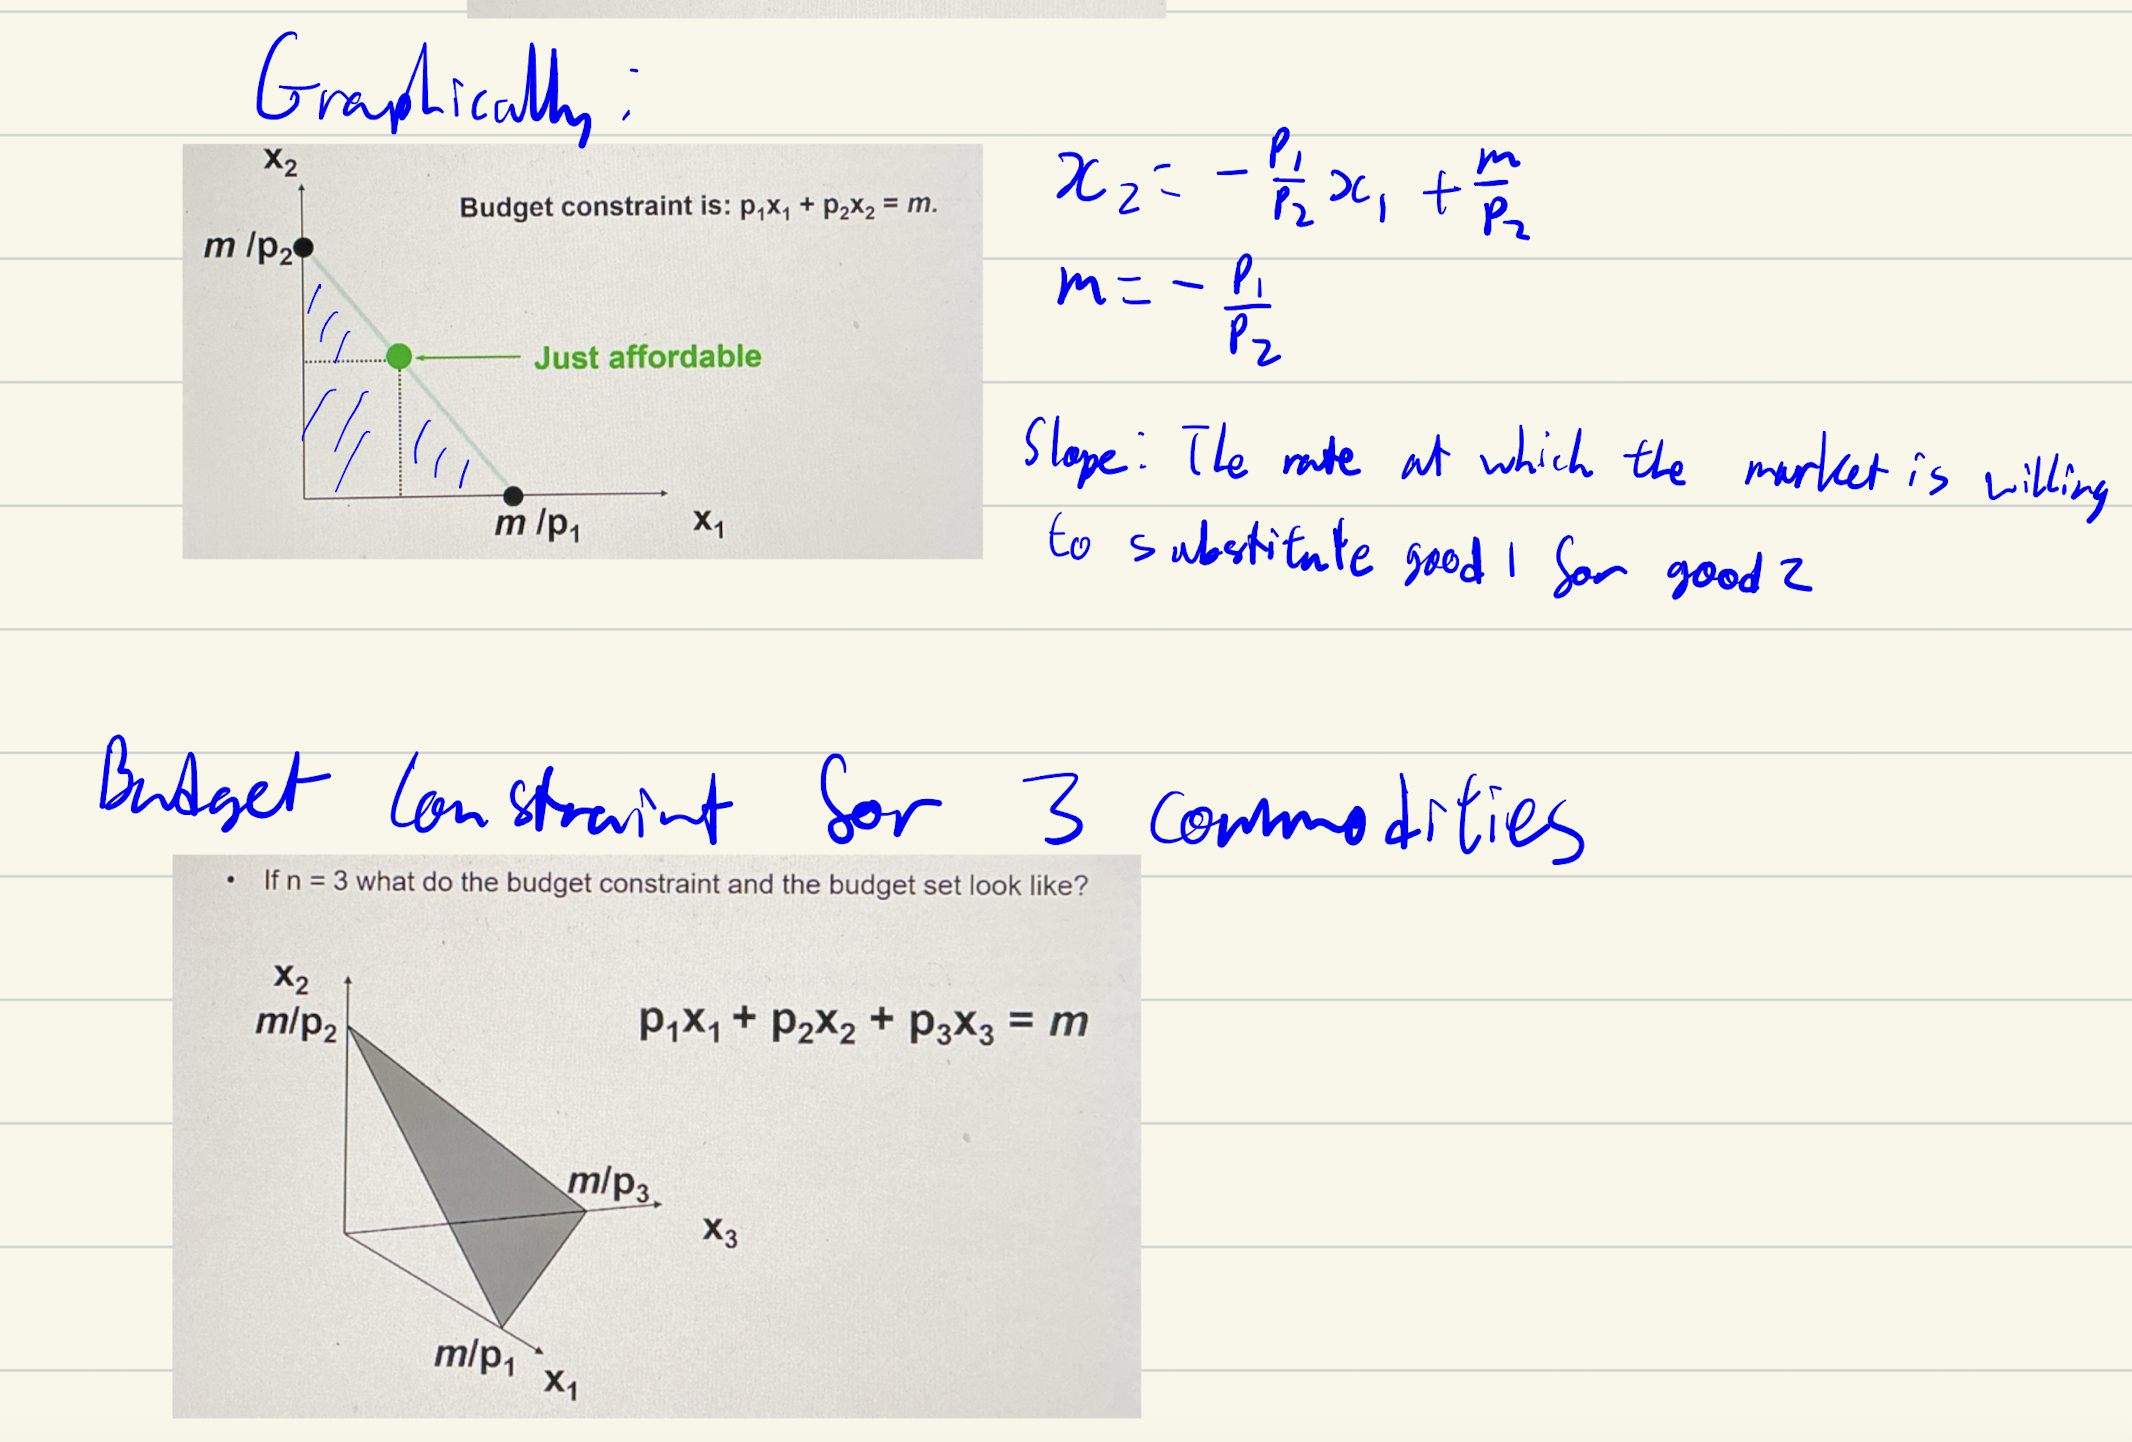 Graphically:
x₂
Budget constraint is: p₁x₁ + p₂x₂ = m.
m /p₂
Just affordable
m /p₁
x₁
x₂ = - p₁/p₂ x₁ + m/p₂
m = - p₁/p₂
Slope: The rate at which the market is willing
to substitute good 1 for good 2
Budget Constraint for 3 commodities
• If n = 3 what do the budget constraint and the budget set look like?
x₂
m/p₂
p₁x₁ + p₂x₂ + p₃x₃ = m
m/p₃
x₃
m/p₁
x₁